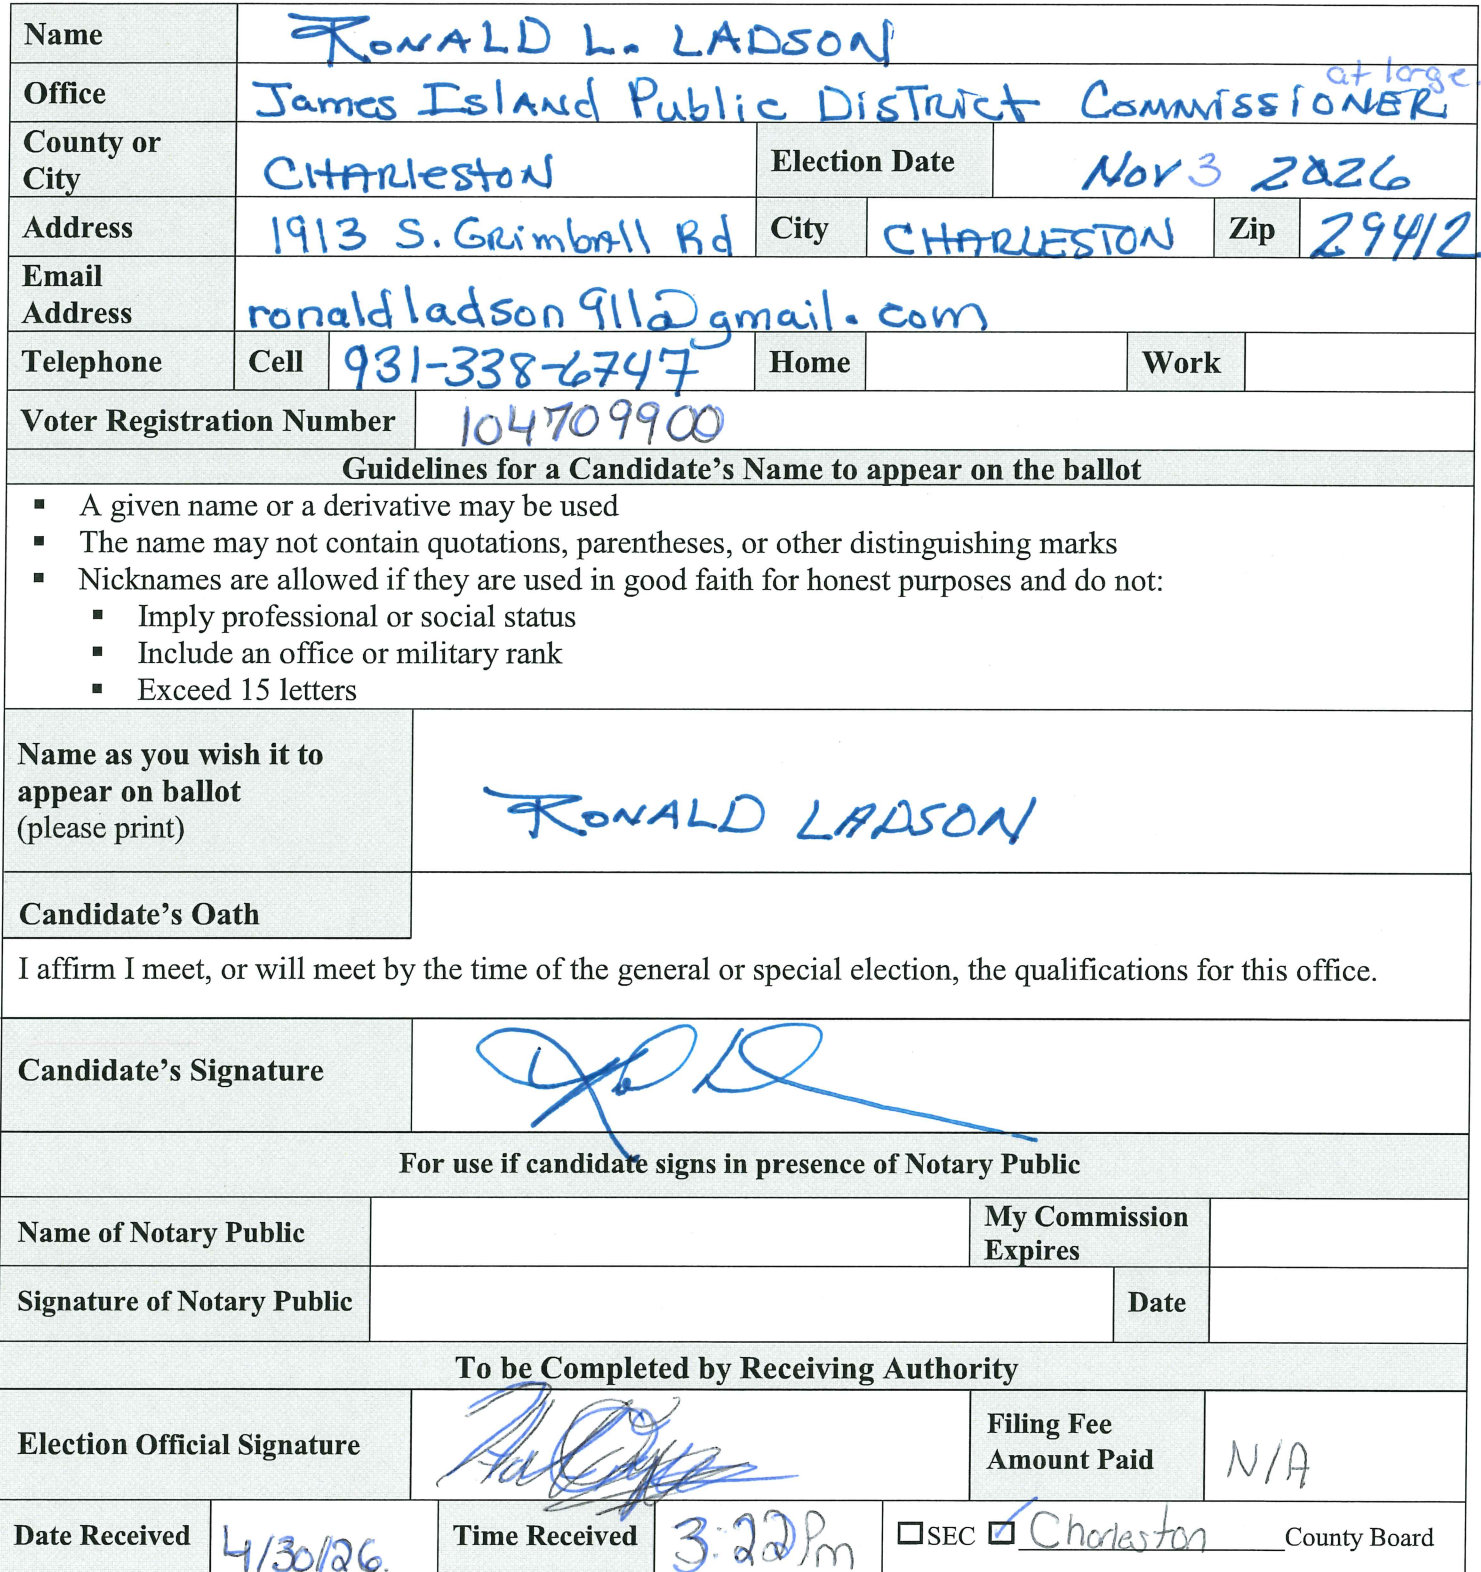 Name RONALD L. LADSON
at large
Office James Island Public District Commissioner
County or City CHARleston Election Date Nov 3 2026
Address 1913 S. Grimball Rd City CHARLESTON Zip 29412
Email Address ronaldladson911@gmail.com
Telephone Cell 931-338-6747 Home Work
Voter Registration Number 104709900
Guidelines for a Candidate’s Name to appear on the ballot
▪ A given name or a derivative may be used
▪ The name may not contain quotations, parentheses, or other distinguishing marks
▪ Nicknames are allowed if they are used in good faith for honest purposes and do not:
▪ Imply professional or social status
▪ Include an office or military rank
▪ Exceed 15 letters
Name as you wish it to
appear on ballot
(please print)
RONALD LADSON
Candidate’s Oath
I affirm I meet, or will meet by the time of the general or special election, the qualifications for this office.
Candidate’s Signature
For use if candidate signs in presence of Notary Public
Name of Notary Public My Commission Expires
Signature of Notary Public Date
To be Completed by Receiving Authority
Election Official Signature Filing Fee Amount Paid N/A
Date Received 4/30/26. Time Received 3:22Pm ☐SEC ☑ Charleston County Board